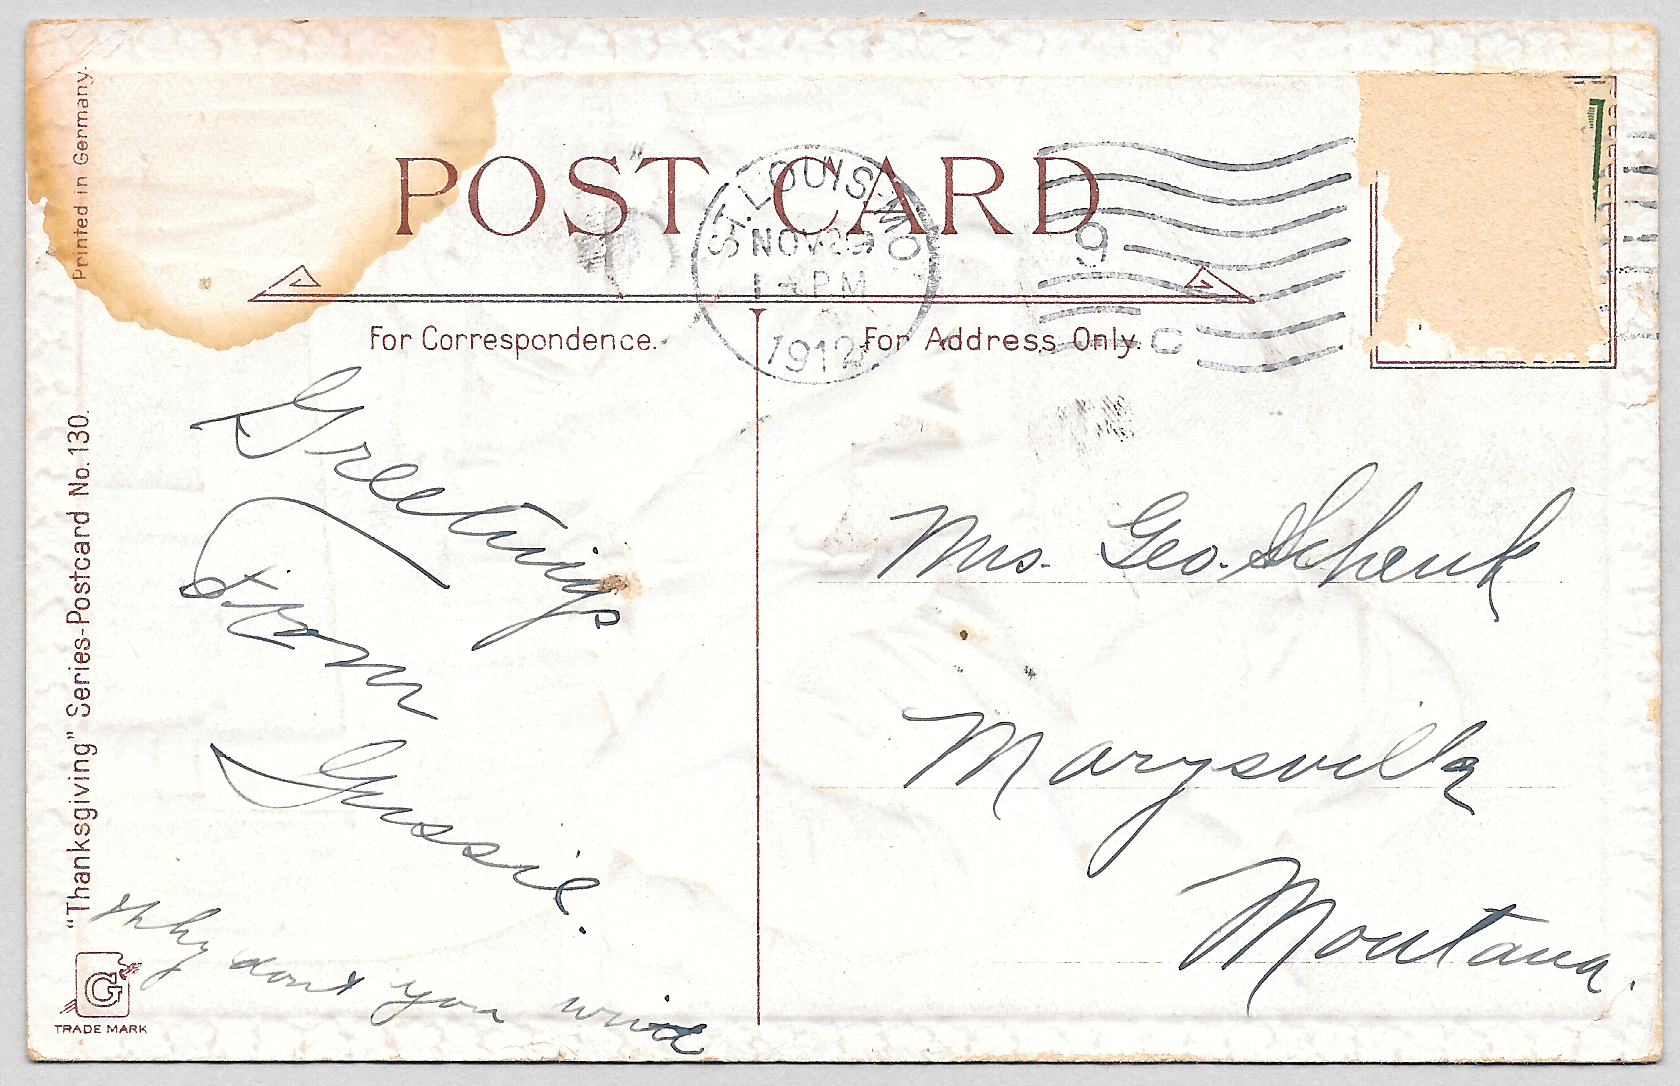 Printed in Germany.
POST CARD
ST. LOUIS, MO
NOV 29
1 - PM
1912
9
C
For Correspondence.
For Address Only.
"Thanksgiving" Series-Postcard No. 130.
Greetings
from
Gussie.
Why dont you write
Mrs. Geo. Schenk
Marysville
Montana.
G
TRADE MARK
1